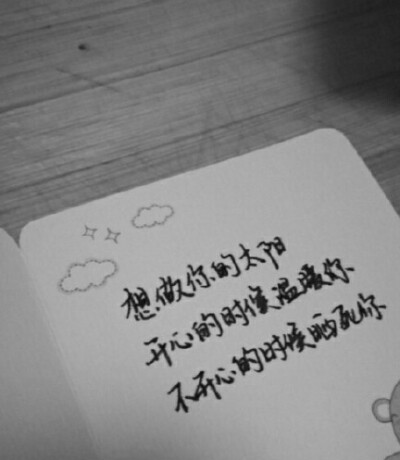 想做你的太阳
开心的时候温暖你
不开心的时候晒死你